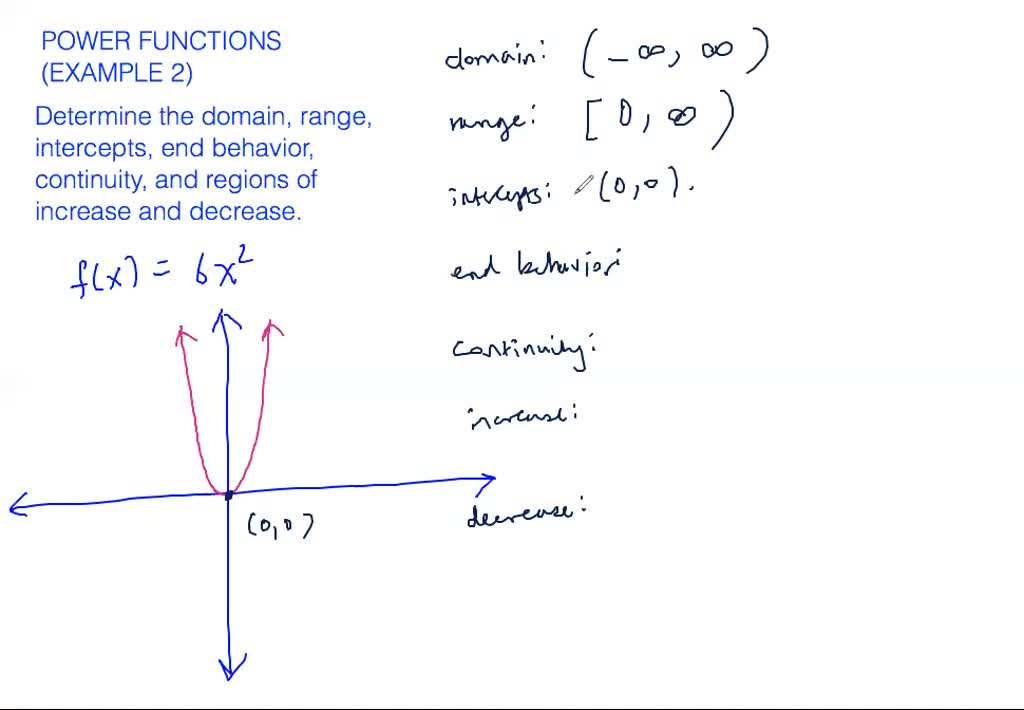 POWER FUNCTIONS
(EXAMPLE 2)
Determine the domain, range,
intercepts, end behavior,
continuity, and regions of
increase and decrease.
f(x) = 6x²
(0,0)
domain: (-∞, ∞)
range: [0, ∞)
intercepts: (0,0).
end behavior:
continuity:
increase:
decrease: